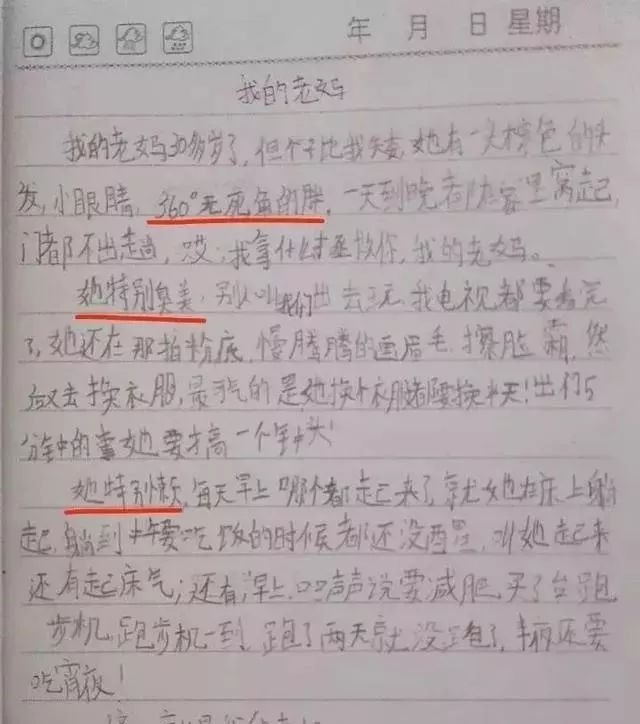 年 月 日 星期
我的老妈
我的老妈30多岁了,但个子比我矮,她有一头棕色的头
发,小眼睛,360°无死角的胖,一天到晚都在家里窝起,
门都不出趟,哎,我拿什么拯救你,我的老妈。
她特别臭美,别人叫我们出去玩,我电视都要看完
了,她还在那拍粉底,慢腾腾的画眉毛,擦脸霜,然
后又去换衣服,最气的是她换个衣服都要换半天!出门5
分钟的事她要才高一个钟头!
她特别懒,每天早上哪个都起来了,就她在床上躺
起,躺到中午要吃饭的时候都还没醒,叫她起来
还有起床气;还有,早上口口声声说要减肥,买了台跑
步机,跑步机一到,跑了两天就没跑了,半夜还要
吃宵夜!